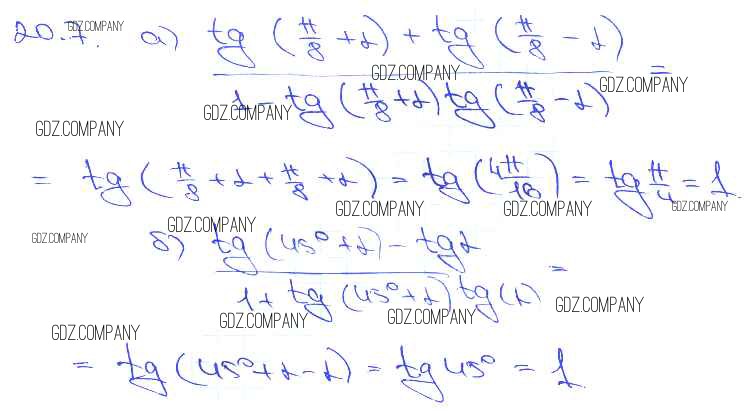 20.7. а) (tg (π/8 + α) + tg (π/8 − α)) / (1 − tg (π/8 + α) tg (π/8 − α)) =
= tg (π/8 + α + π/8 + α) = tg (4π/16) = tg π/4 = 1.
б) (tg (45° + α) − tg α) / (1 + tg (45° + α) tg (α)) =
= tg (45° + α − α) = tg 45° = 1.
GDZ.COMPANY
GDZ.COMPANY
GDZ.COMPANY
GDZ.COMPANY
GDZ.COMPANY
GDZ.COMPANY
GDZ.COMPANY
GDZ.COMPANY
GDZ.COMPANY
GDZ.COMPANY
GDZ.COMPANY
GDZ.COMPANY
GDZ.COMPANY
GDZ.COMPANY